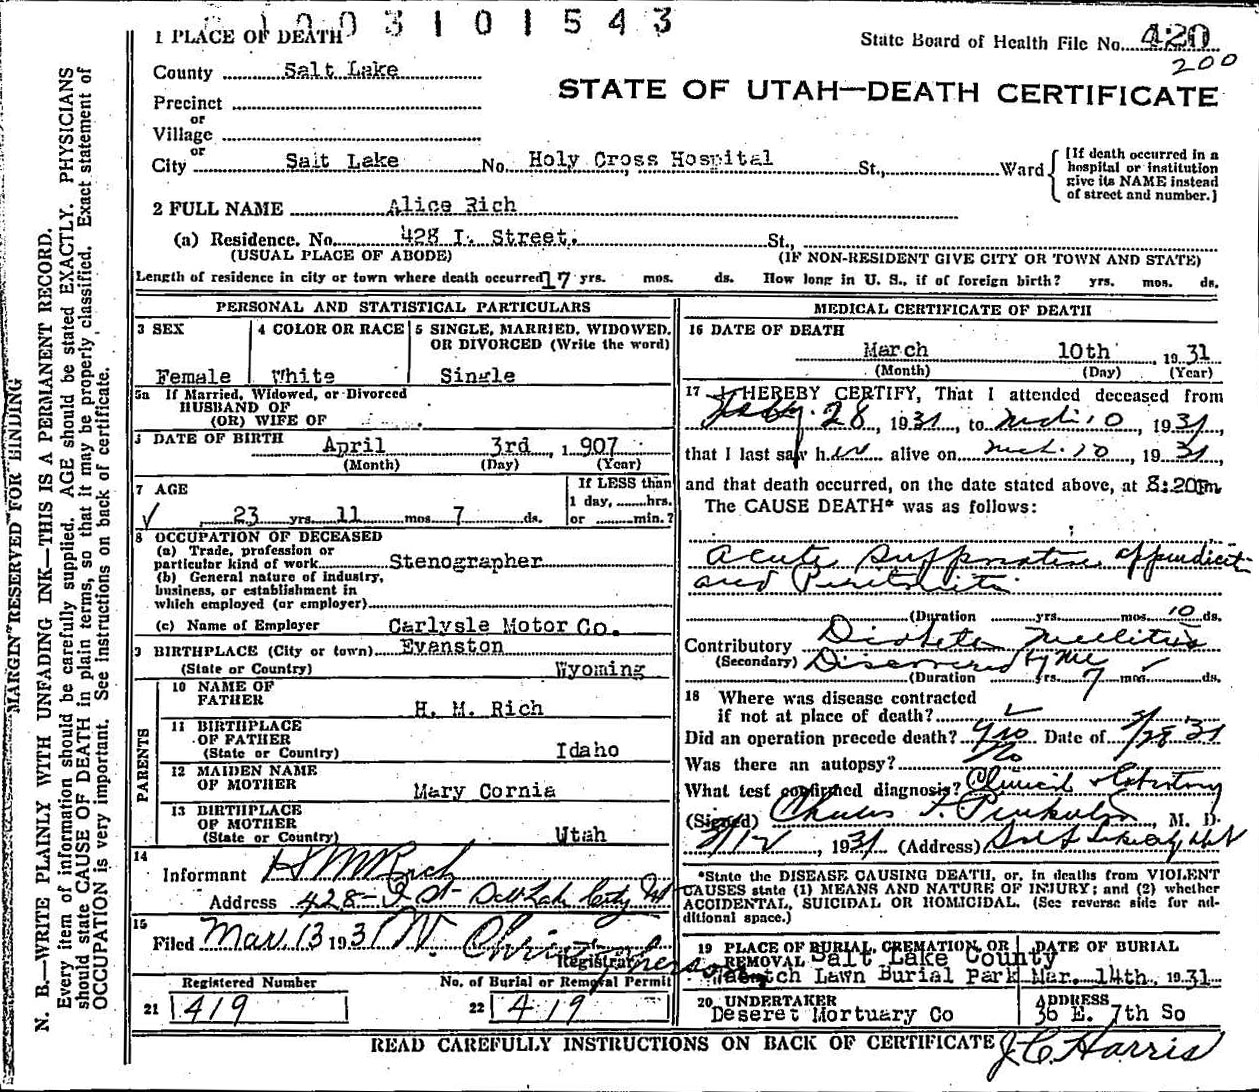 1003101543
1 PLACE OF DEATH
State Board of Health File No. 420
200
County Salt Lake
STATE OF UTAH—DEATH CERTIFICATE
Precinct
or
Village
or
City Salt Lake No. Holy Cross Hospital St., Ward
[If death occurred in a
hospital or institution
give its NAME instead
of street and number.]
2 FULL NAME Alice Rich
(a) Residence. No. 428 I. Street. St.,
(USUAL PLACE OF ABODE) (IF NON-RESIDENT GIVE CITY OR TOWN AND STATE)
Length of residence in city or town where death occurred 17 yrs. mos. ds. How long in U. S., if of foreign birth? yrs. mos. ds.
PERSONAL AND STATISTICAL PARTICULARS
3 SEX
Female
4 COLOR OR RACE
White
5 SINGLE, MARRIED, WIDOWED,
OR DIVORCED (Write the word)
Single
5a If Married, Widowed, or Divorced
HUSBAND OF
(OR) WIFE OF
DATE OF BIRTH
April 3rd, 1907
(Month) (Day) (Year)
7 AGE
23 yrs. 11 mos 7 ds.
If LESS than
1 day, ......hrs.
or ........min.?
8 OCCUPATION OF DECEASED
(a) Trade, profession or
particular kind of work Stenographer
(b) General nature of industry,
business, or establishment in
which employed (or employer)
(c) Name of Employer Carlysle Motor Co.
9 BIRTHPLACE (City or town) Evanston
(State or Country) Wyoming
PARENTS
10 NAME OF
FATHER H. M. Rich
11 BIRTHPLACE
OF FATHER
(State or Country) Idaho
12 MAIDEN NAME
OF MOTHER Mary Cornia
13 BIRTHPLACE
OF MOTHER
(State or Country) Utah
14
Informant H M Rich
Address 428- I St Salt Lake City Ut
15
Filed Mar. 13 1931 W. Christopherson
Registrar
Registered Number
21 419
No. of Burial or Removal Permit
22 419
MEDICAL CERTIFICATE OF DEATH
16 DATE OF DEATH
March 10th, 1931
(Month) (Day) (Year)
17 I HEREBY CERTIFY, That I attended deceased from
Feby. 28, 1931, to Mch. 10, 1931,
that I last saw her alive on Mch. 10, 1931,
and that death occurred, on the date stated above, at 8:20Pm
The CAUSE DEATH* was as follows:
Acute Suppurative appendicitis
and Peritonitis
(Duration yrs. mos. 10 ds.
Contributory Diabetes Mellitus
(Secondary) Discovered by me
(Duration yrs. 7 mos. ds.
18 Where was disease contracted
if not at place of death?
Did an operation precede death? Yes Date of 2/28 31
Was there an autopsy? No
What test confirmed diagnosis? Clinical & Laboratory
(Signed) M. D.
3/12, 1931 (Address) Salt Lake City Ut
*State the DISEASE CAUSING DEATH, or, in deaths from VIOLENT
CAUSES state (1) MEANS AND NATURE OF INJURY; and (2) whether
ACCIDENTAL, SUICIDAL OR HOMICIDAL. (See reverse side for ad-
ditional space.)
19 PLACE OF BURIAL, CREMATION, OR
REMOVAL Salt Lake County
Wasatch Lawn Burial Park
DATE OF BURIAL
Mar. 14th, 1931
20 UNDERTAKER
Deseret Mortuary Co
ADDRESS
36 E. 7th So
READ CAREFULLY INSTRUCTIONS ON BACK OF CERTIFICATE
J. C. Harris
MARGIN RESERVED FOR BINDING
N. B.—WRITE PLAINLY WITH UNFADING INK—THIS IS A PERMANENT RECORD.
Every item of information should be carefully supplied. AGE should be stated EXACTLY. PHYSICIANS
should state CAUSE OF DEATH in plain terms, so that it may be properly classified. Exact statement of
OCCUPATION is very important. See instructions on back of certificate.